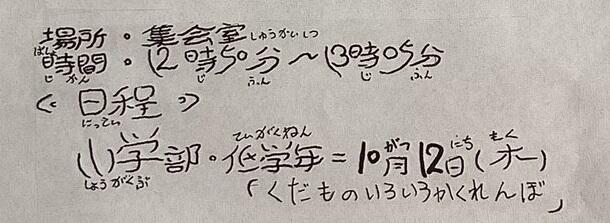 場所・集会室しゅうかいしつ
ばしょ
時間・12時50分～13時05分
じかん じ ふん じ ふん
《日程》
にってい
ていがくねん がつ にち もく
小学部・低学年＝10月12日(木)
しょうがくぶ
「くだものいろいろかくれんぼ」